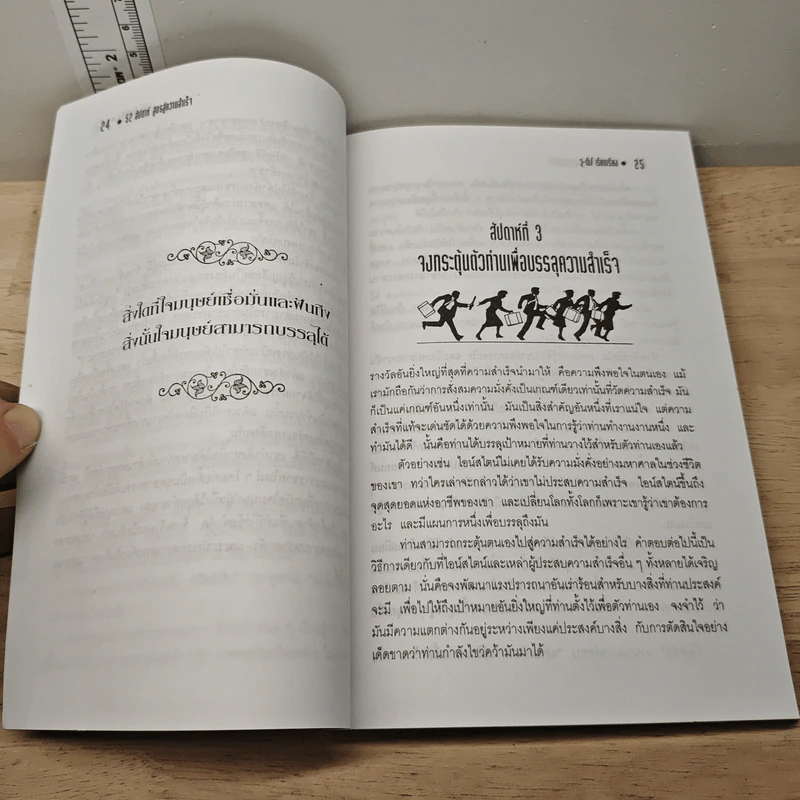 24 • 52 สัปดาห์ สูตรสู่ความสำเร็จ
สิ่งใดที่ใจมนุษย์เชื่อมั่นและฝันถึง
สิ่งนั้นใจมนุษย์สามารถบรรลุได้
• 25
สัปดาห์ที่ 3
จงกระตุ้นตัวท่านเพื่อบรรลุความสำเร็จ
รางวัลอันยิ่งใหญ่ที่สุดที่ความสำเร็จนำมาให้ คือความพึงพอใจในตนเอง แม้
เรามักถือกันว่าการสั่งสมความมั่งคั่งเป็นเกณฑ์เดียวเท่านั้นที่วัดความสำเร็จ มัน
ก็เป็นแค่เกณฑ์อันหนึ่งเท่านั้น มันเป็นสิ่งสำคัญอันหนึ่งที่เราแน่ใจ แต่ความ
สำเร็จที่แท้จะเด่นชัดได้ด้วยความพึงพอใจในการรู้ว่าท่านทำงานงานหนึ่ง และ
ทำมันได้ดี นั้นคือท่านได้บรรลุเป้าหมายที่ท่านวางไว้สำหรับตัวท่านเองแล้ว
ตัวอย่างเช่น ไอน์สไตน์ไม่เคยได้รับความมั่งคั่งอย่างมหาศาลในช่วงชีวิต
ของเขา ทว่าใครเล่าจะกล่าวได้ว่าเขาไม่ประสบความสำเร็จ ไอน์สไตน์ขึ้นถึง
จุดสุดยอดแห่งอาชีพของเขา และเปลี่ยนโลกทั้งโลกก็เพราะเขารู้ว่าเขาต้องการ
อะไร และมีแผนการหนึ่งเพื่อบรรลุถึงมัน
ท่านสามารถกระตุ้นตนเองไปสู่ความสำเร็จได้อย่างไร คำตอบต่อไปนี้เป็น
วิธีการเดียวกับที่ไอน์สไตน์และเหล่าผู้ประสบความสำเร็จอื่น ๆ ทั้งหลายได้เจริญ
ลอยตาม นั่นคือจงพัฒนาแรงปรารถนาอันเร่าร้อนสำหรับบางสิ่งที่ท่านประสงค์
จะมี เพื่อไปให้ถึงเป้าหมายอันยิ่งใหญ่ที่ท่านตั้งไว้เพื่อตัวท่านเอง จงจำไว้ ว่า
มันมีความแตกต่างกันอยู่ระหว่างเพียงแค่ประสงค์บางสิ่ง กับการตัดสินใจอย่าง
เด็ดขาดว่าท่านกำลังไขว่คว้ามันมาได้